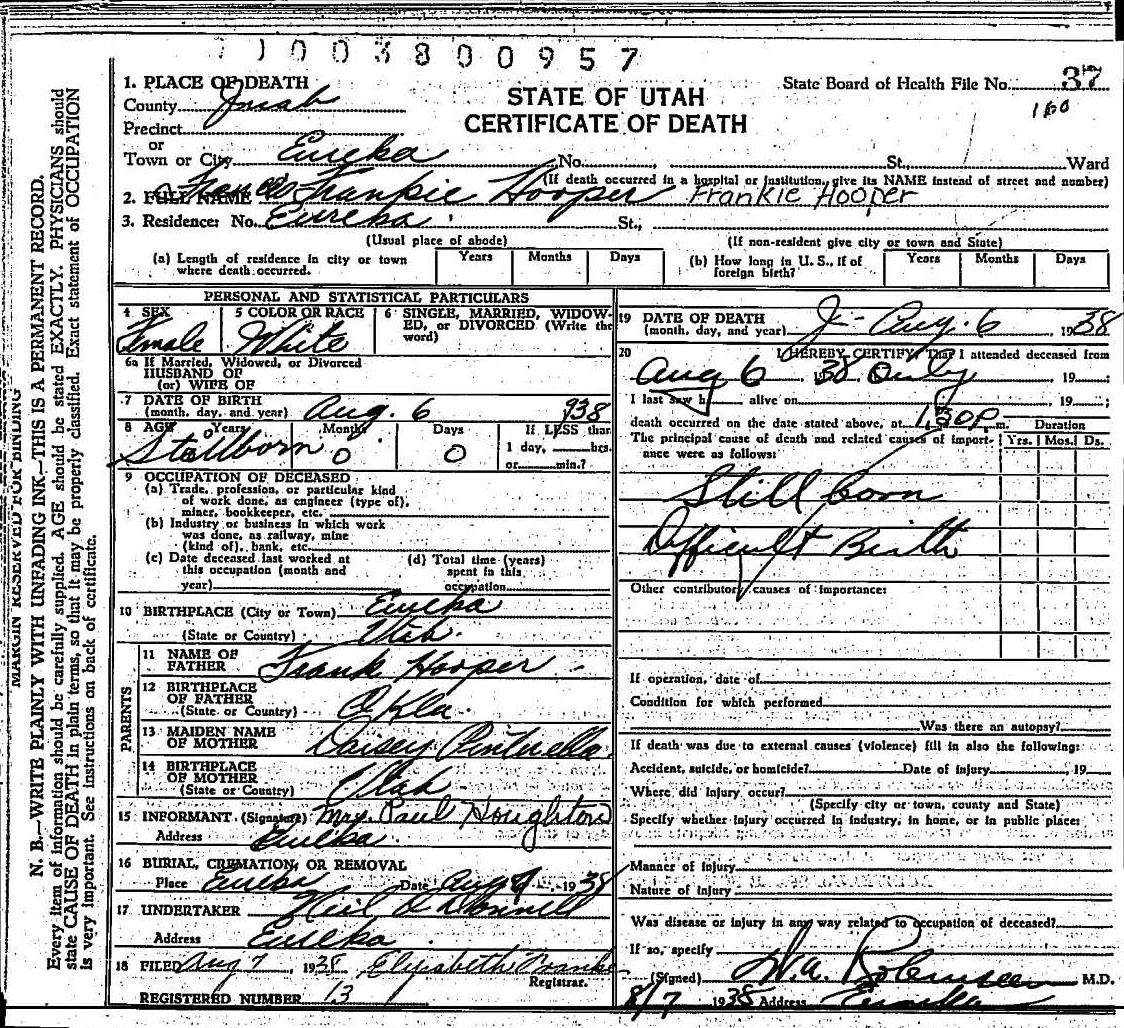 7 1 0 0 3 8 0 0 9 5 7
1. PLACE OF DEATH
County Juab
STATE OF UTAH
CERTIFICATE OF DEATH
State Board of Health File No. 37
160
Precinct
or
Town or City Eureka No. St. Ward
(If death occurred in a hospital or institution, give its NAME instead of street and number)
2. FULL NAME Frankie Hooper Frankie Hooper
3. Residence: No. Eureka St.,
(Usual place of abode) (If non-resident give city or town and State)
(a) Length of residence in city or town where death occurred. Years Months Days
(b) How long in U. S., if of foreign birth? Years Months Days
PERSONAL AND STATISTICAL PARTICULARS
4 SEX 5 COLOR OR RACE 6 SINGLE, MARRIED, WIDOW-
ED, or DIVORCED (Write the
word)
Female White
6a If Married, Widowed, or Divorced
HUSBAND OF
(or) WIFE OF
7 DATE OF BIRTH
(month, day, and year) Aug. 6 938
8 AGE Years Months Days If LESS than
1 day, hrs.
or min.?
Stillborn 0 0
9 OCCUPATION OF DECEASED
(a) Trade, profession, or particular kind
of work done, as engineer (type of),
miner, bookkeeper, etc.
(b) Industry or business in which work
was done, as railway, mine
(kind of), bank, etc.
(c) Date deceased last worked at
this occupation (month and
year)
(d) Total time (years)
spent in this
occupation
10 BIRTHPLACE (City or Town) Eureka
(State or Country) Utah.
PARENTS
11 NAME OF
FATHER Frank Hooper
12 BIRTHPLACE
OF FATHER
(State or Country) Okla.
13 MAIDEN NAME
OF MOTHER Daisey
14 BIRTHPLACE
OF MOTHER
(State or Country) Utah
15 INFORMANT (Signature) Mrs. Paul Houghton
Address Eureka
16 BURIAL, CREMATION, OR REMOVAL
Place Eureka Date Aug 1938
17 UNDERTAKER Neil O Donnell
Address Eureka
18 FILED Aug 7, 1938 Elizabeth
Registrar.
REGISTERED NUMBER 13
19 DATE OF DEATH
(month, day, and year) Aug. 6, 1938
20 I HEREBY CERTIFY, That I attended deceased from
Aug 6, 38 Only, 19 ;
I last saw h alive on , 19 ;
death occurred on the date stated above, at 1:30 P. m.
The principal cause of death and related causes of import-
ance were as follows:
Duration
Yrs. Mos. Ds.
Still born
Difficult Birth
Other contributory causes of importance:
If operation, date of
Condition for which performed
Was there an autopsy?
If death was due to external causes (violence) fill in also the following:
Accident, suicide, or homicide? Date of injury , 19
Where did injury occur?
(Specify city or town, county and State)
Specify whether injury occurred in industry, in home, or in public place:
Manner of injury
Nature of injury
Was disease or injury in any way related to occupation of deceased?
If so, specify
(Signed) M.D.
8/7 1938 Address Eureka
MARGIN RESERVED FOR BINDING
N. B.—WRITE PLAINLY WITH UNFADING INK—THIS IS A PERMANENT RECORD.
Every item of information should be carefully supplied. AGE should be stated EXACTLY. PHYSICIANS should
state CAUSE OF DEATH in plain terms, so that it may be properly classified. Exact statement of OCCUPATION
is very important. See instructions on back of certificate.